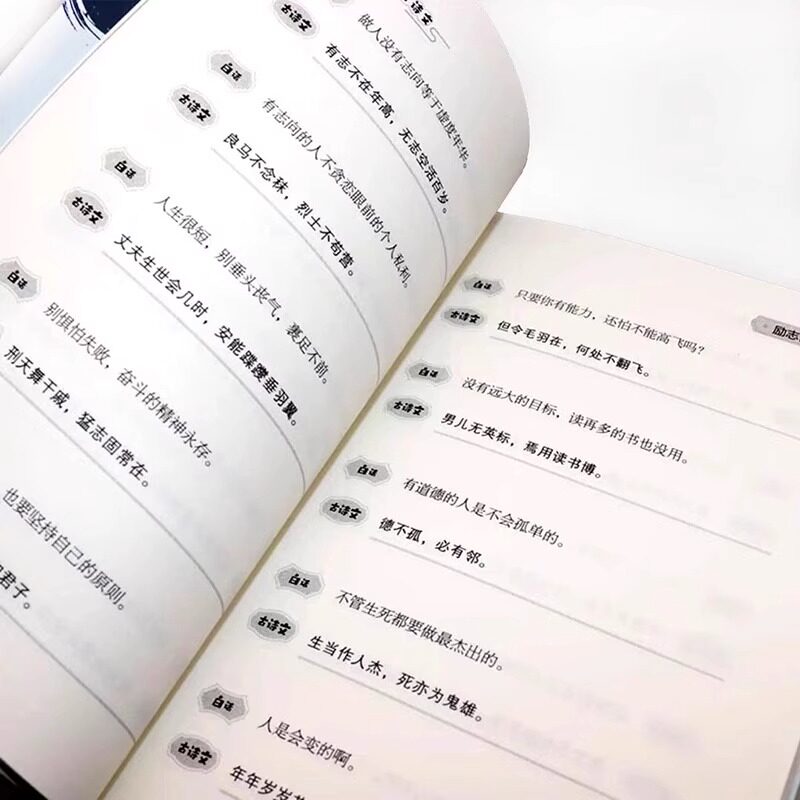 古诗文
古诗文
做人没有志向等于虚度年华。
有志不在年高，无志空活百岁。
白话
古诗文
有志向的人不贪恋眼前的个人私利。
良马不念秣，烈士不苟营。
白话
古诗文
人生很短，别垂头丧气，裹足不前。
丈夫生世会几时，安能蹀躞垂羽翼。
白话
别惧怕失败，奋斗的精神永存。
刑天舞干戚，猛志固常在。
也要坚持自己的原则。
君子。
励志
白话
只要你有能力，还怕不能高飞吗？
古诗文
但令毛羽在，何处不翻飞。
白话
没有远大的目标，读再多的书也没用。
古诗文
男儿无英标，焉用读书博。
白话
有道德的人是不会孤单的。
古诗文
德不孤，必有邻。
白话
不管生死都要做最杰出的。
古诗文
生当作人杰，死亦为鬼雄。
白话
人是会变的啊。
古诗文
年年岁岁